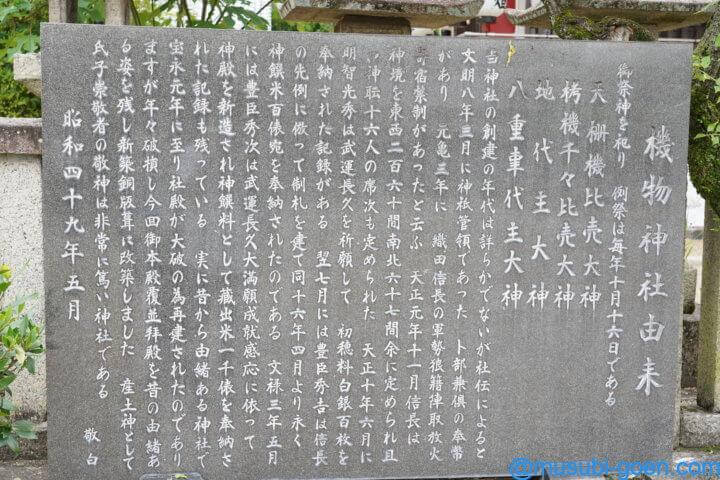 機物神社由来
御祭神を祀り 例祭は毎年十月十六日である
天棚機比売大神
栲機千々比売大神
地代主大神
八重事代主大神
当神社の創建の年代は詳らかでないが社伝によると
文明八年三月に神祇管領であった 卜部兼倶の奉幣
があり 元亀三年に 織田信長の軍勢狼籍陣取放火
寄宿禁制があったと云ふ 天正元年十一月信長は
神境を東西二百六十間南北六十七間余に定められ且
い神耘十六人の席次も定められた 天正十年六月に
明智光秀は武運長久を祈願して 初穂料白銀百枚を
奉納された記録がある 翌七月には豊臣秀吉は信長
の先例に倣って制札を建て同十六年四月より永く
神饌米百俵宛を奉納されたのである 文禄三年五月
には豊臣秀次は武運長久大満願成就感応に依って
神殿を新造され神饌料として蔵出米一千俵を奉納さ
れた記録も残っている 実に昔から由緒ある神社で
宝永元年に至り社殿が大破の為再建されたのであり
ますが年々破損し今回御本殿覆並拝殿を昔の由緒あ
る姿を残し新築銅版葺に改築しました 産土神として
氏子崇敬者の敬神は非常に篤い神社である
敬白
昭和四十九年五月
@musubi-goen.com